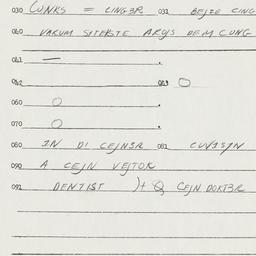 030 CUNKS = LINGER 031 BEJZE CING
040 VARUM SITEKSTE ARQS DEM CUNG
041 —
042 043 O
060 O
070 O
080 IN DI CEJNER 081 CUVISJN
090 A CEJN VEJTOK
091 DENTIST )+ Q CEJN DOKTER